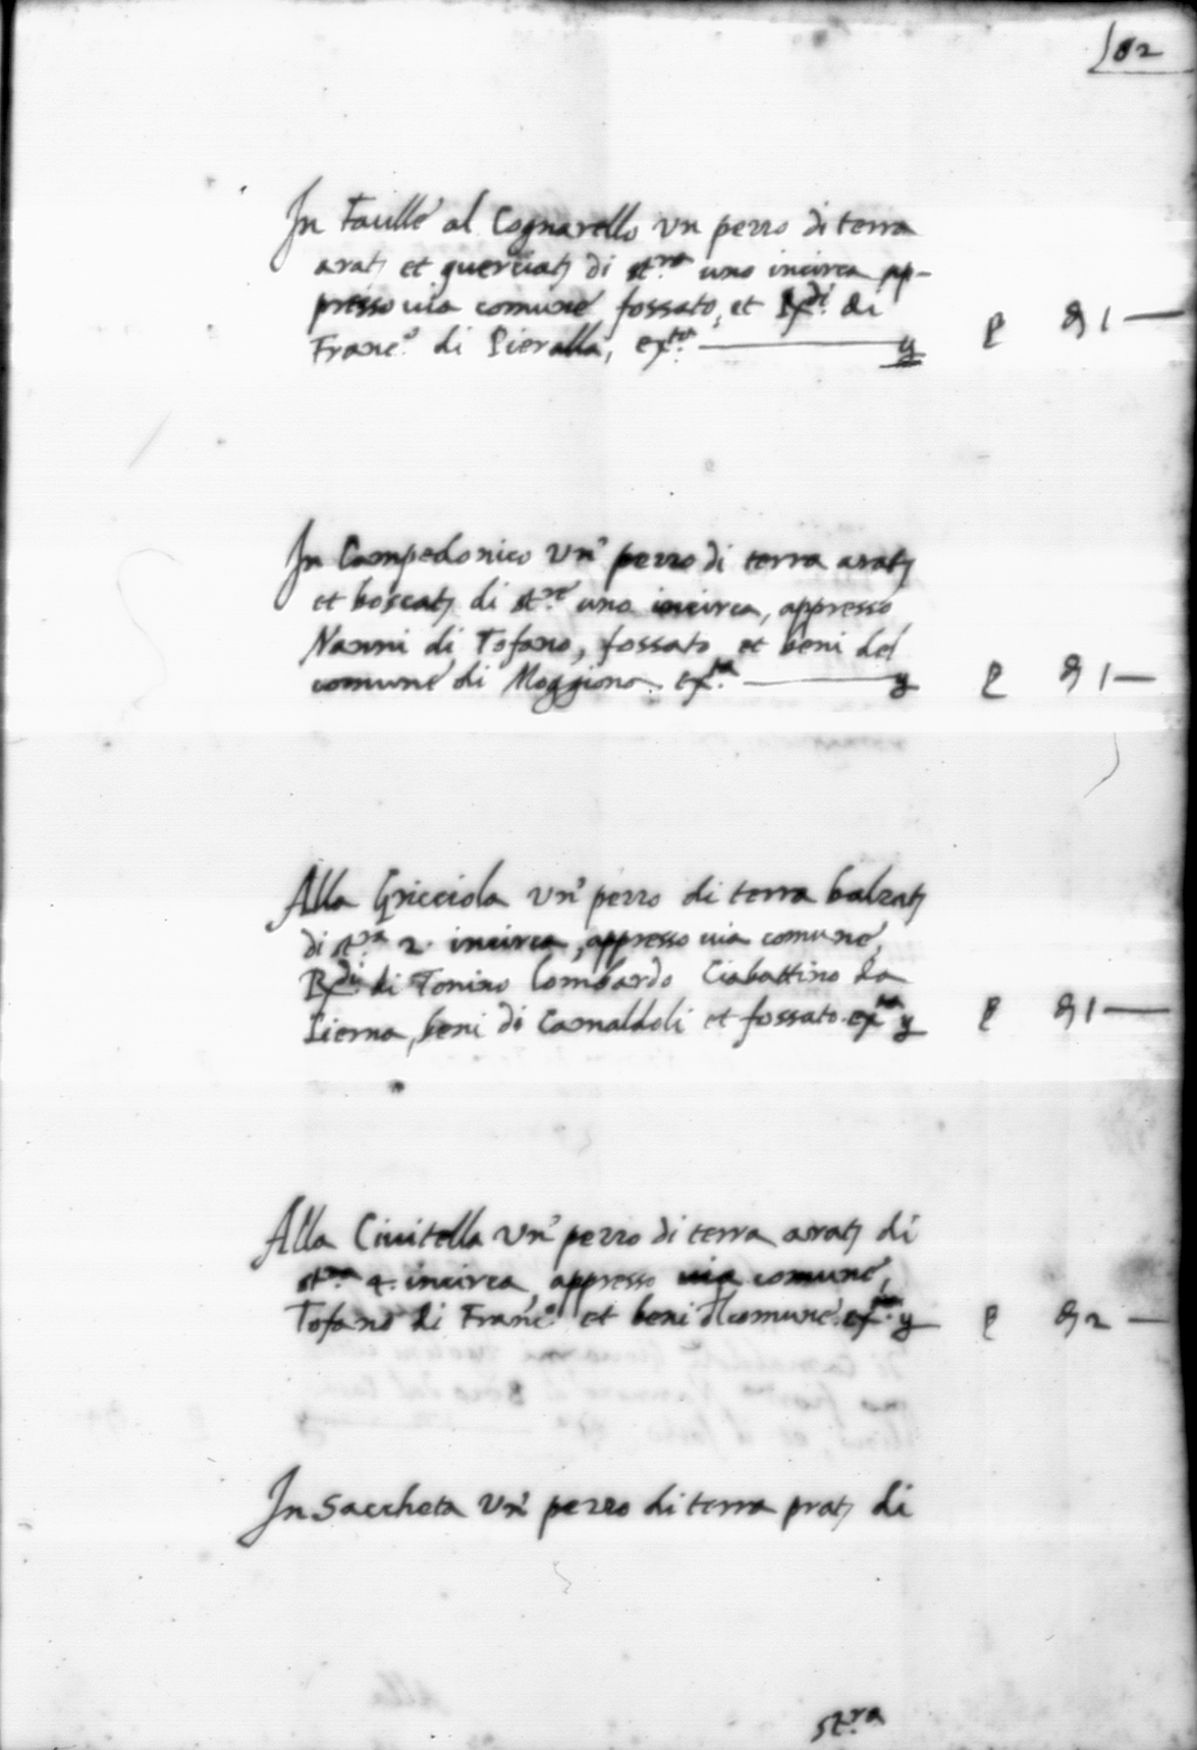 102
In Faulle al Cognarello un pezzo di terra
arat. et querciat. di st.ra uno incirca ap-
presso uia comune, fossato, et di
Franc.o di Pieralla, ex.ta
In Campedonico un' pezzo di terra arat.
et boscat. di st.re uno incirca, appresso
Nanni di Tofano, fossato et beni del
comune di Moggiona. ex.ta
1
Alla Gricciola un' pezzo di terra balzat.
di st.ra 2. incirca, appresso uia comune,
di Tonino lombardo Ciabattino da
Pierna, beni di Camaldoli et fossato. ex.ta
1
Alla Ciuitella un' pezzo di terra arat. di
st.ra 4. incirca, appresso uia comune,
Tofano di Franc.o et beni d'l comune. ex.ta
2
In Saccheta un' pezzo di terra prat. di
st.ra